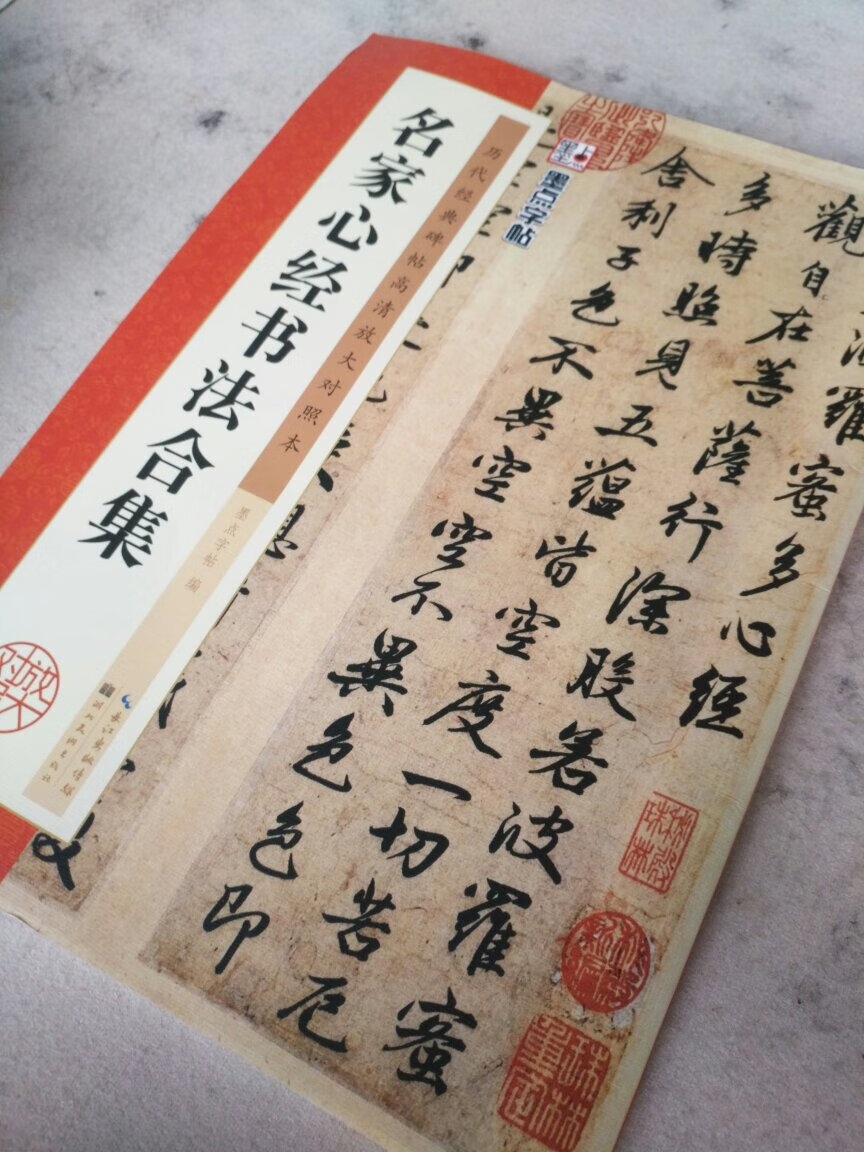 名家心经书法合集
历代经典碑帖高清放大对照本
墨点字帖 编
长江出版传媒
湖北美术出版社
墨点字帖
波羅蜜多心經
觀自在菩薩行深般若波羅蜜
多時照見五蘊皆空度一切苦厄
舍利子色不異空空不異色色即